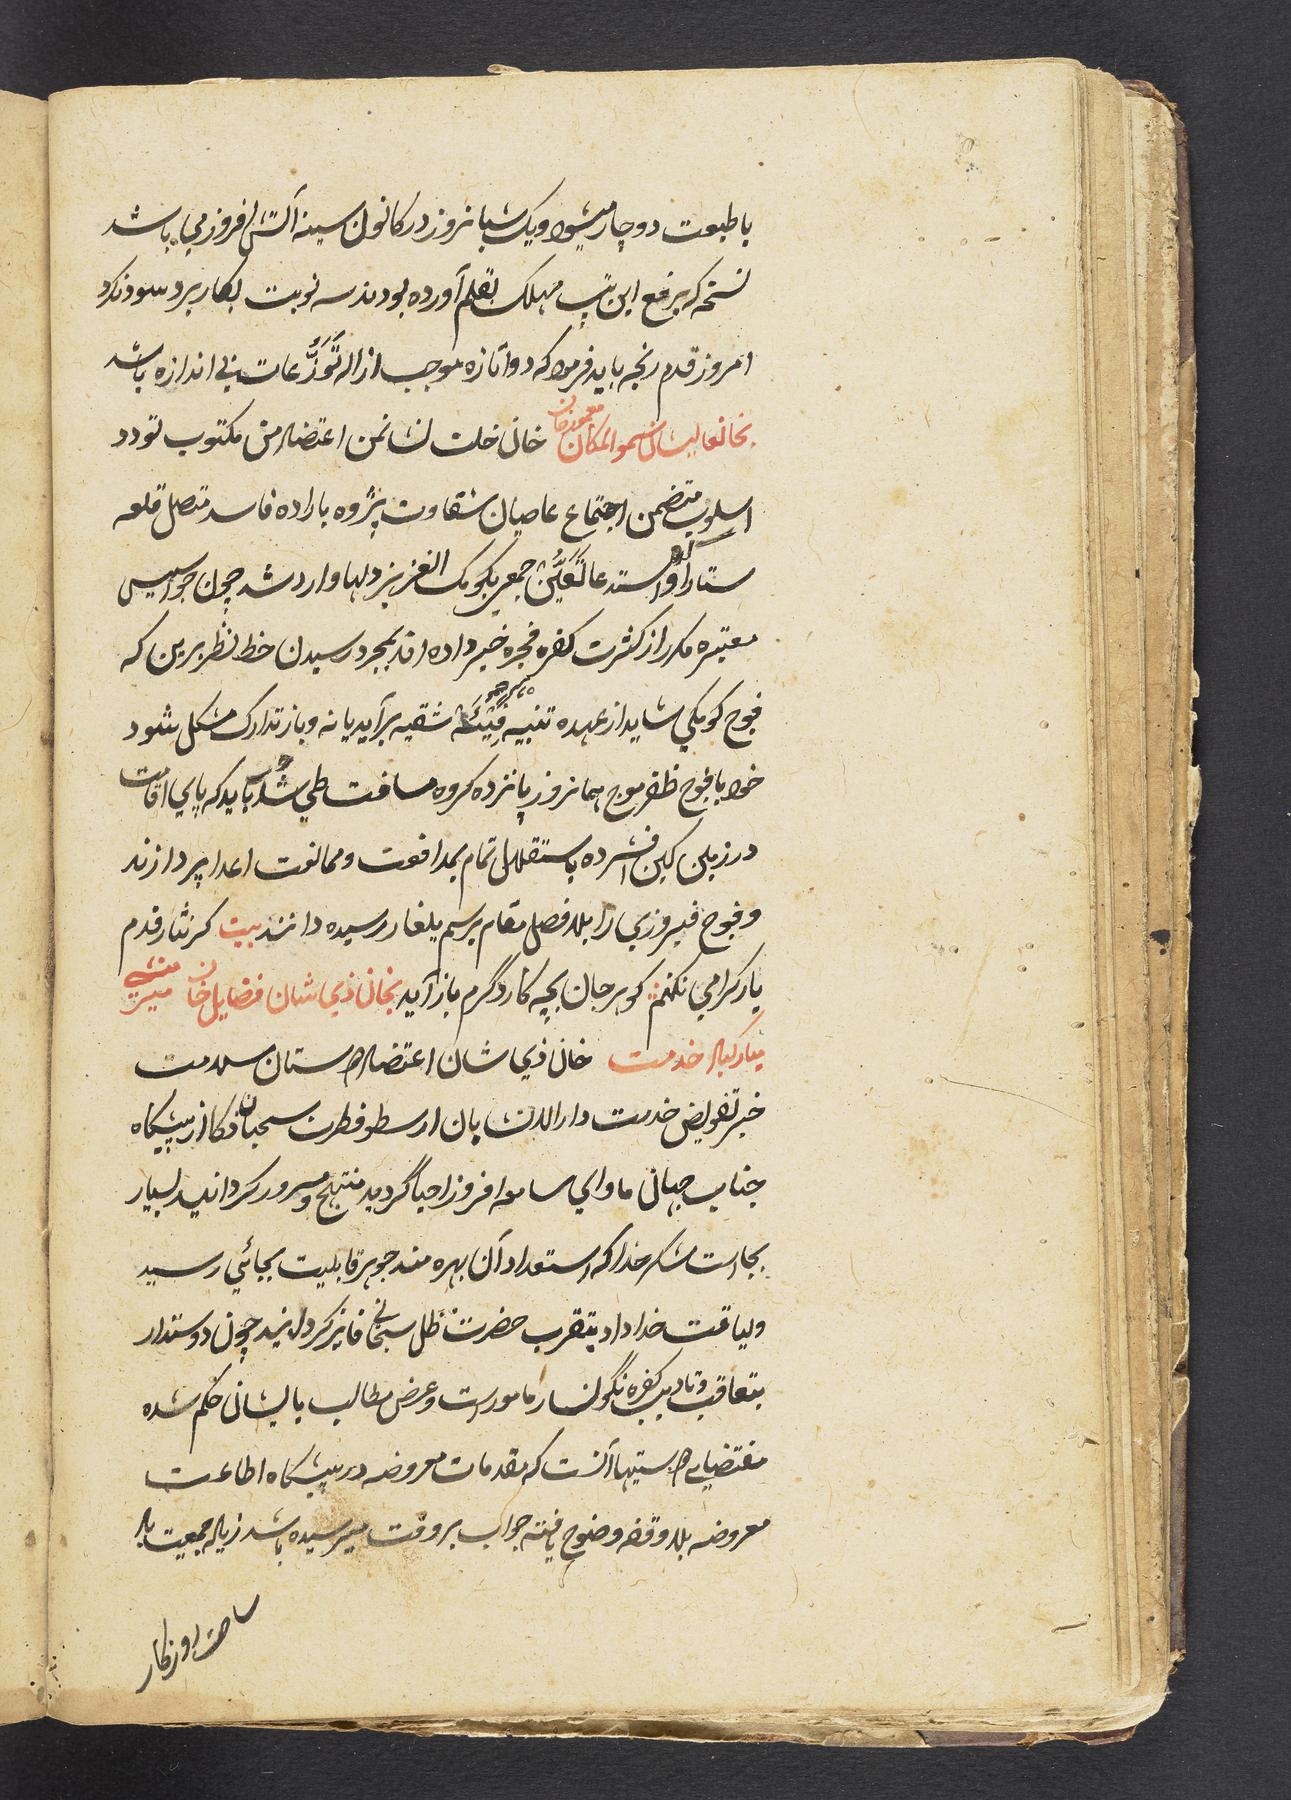 با طبعت دوچار میشود و یک شبانروز در کانون سینه آتش افروز می باشد
نسخه که برفع این تپ مهلک بقلم آورده بودند سه نوبت بکار برد سود نکرد
امروز قدم رنجه باید فرمود که دوا تازه موجب ازاله تَوَزُّعات بی اندازه باشد
بخانعالیشان سمو المکان معمور خان خان خلت نشانمن اعتضاد من مکتوب تودد
اسلوب متضمن اجتماع عاصیان شقاوت پژوه باراده فاسد متصل قلعه
ستارا و استدعا تَعَیُّن جمعی بکومک العزیز دلها وارد شد چون جواسیس
معتبره مکرر از کثرت کفره فجره خبر داده اند بمجرد رسیدن خط نظر برین که
فوج کومکی شاید از عهده تنبیه فِئَه شقیه برآید یا نه و باز تدارک مشکل شود
خود با فوج ظفر موج همانروز پانزده کروه مسافت طی شد باید که پای اقامت
در زمین کین افشرده باستقلال تمام بمدافعت و ممانعت اعدا پردازند
و فوج فیروزی را بلا فصل مقام برسم یلغار رسیده دانند بیت کر نثار قدم
یار کرامی نکنم کوهر جان بچه کار دگرم باز آید بخان ذی شان فضایل خان میر منشی
مبارکباد خدمت خان ذی شان اعتضاد دوستان سلامت
خبر تفویض خدمت دار الانشا بان ارسطو فطرت سحبان ذکا از پیشکاه
جناب جهان ماوای سامعه افروز احبا گردید مبتهج و مسرور کردانید بسیار
بجا است شکر خدا که استعداد آن بهره مند جوهر قابلیت بجائی رسید
و لیاقت خداداد بتقرب حضرت ظل سبحانی فایز کردانید چون دوستدار
بتعاقب و تادیب کفره نگونسار مامورست و عرض مطالب بایشان حکم شده
مقتضای دوستیها آنست که مقدمات معروضه در پیشکاه اطاعت
معروضه بلا وقفه وضوح یافته جواب بر وقت میرسیده باشد زیاده جمعیت باد
ساحت روزکار